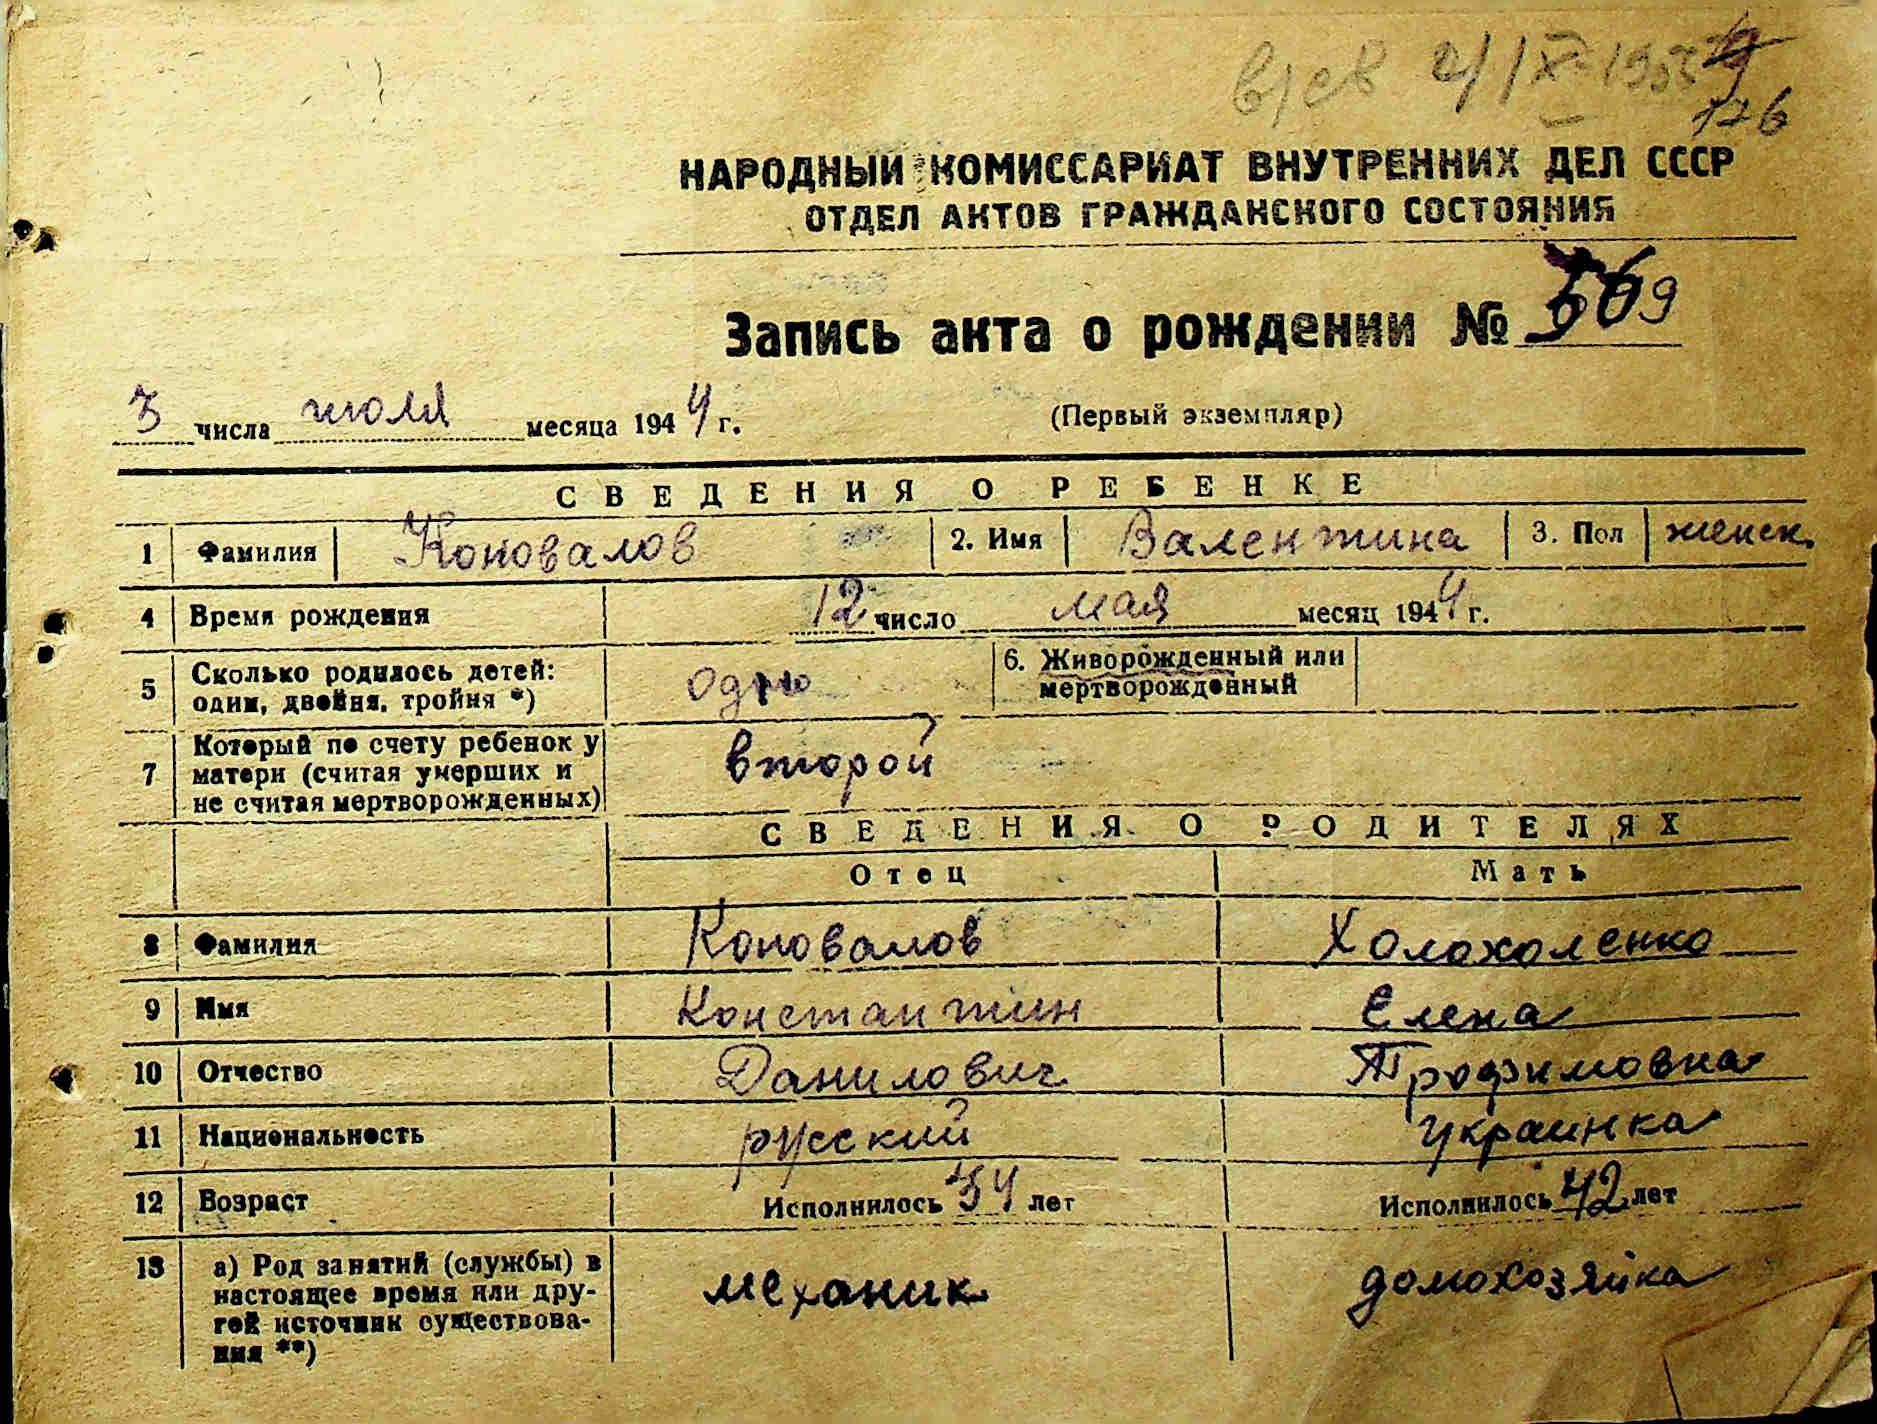 в/св 2/IX-195
126
НАРОДНЫЙ КОМИССАРИАТ ВНУТРЕННИХ ДЕЛ СССР
ОТДЕЛ АКТОВ ГРАЖДАНСКОГО СОСТОЯНИЯ
Запись акта о рождении № 569
3 числа июля месяца 1944 г. (Первый экземпляр)
СВЕДЕНИЯ О РЕБЕНКЕ
1 Фамилия Коновалов 2. Имя Валентина 3. Пол женск.
4 Время рождения 12 число мая месяц 1944 г.
5 Сколько родилось детей: одна, двойня, тройня *) одно 6. Живорожденный или мертворожденный
7 Который по счету ребенок у матери (считая умерших и не считая мертворожденных) второй
СВЕДЕНИЯ О РОДИТЕЛЯХ
Отец Мать
8 Фамилия Коновалов Холохоленко
9 Имя Константин Елена
10 Отчество Данилович Трофимовна
11 Национальность русский украинка
12 Возраст Исполнилось 34 лет Исполнилось 42 лет
13 а) Род занятий (службы) в настоящее время или другой источник существования **) механик домохозяйка